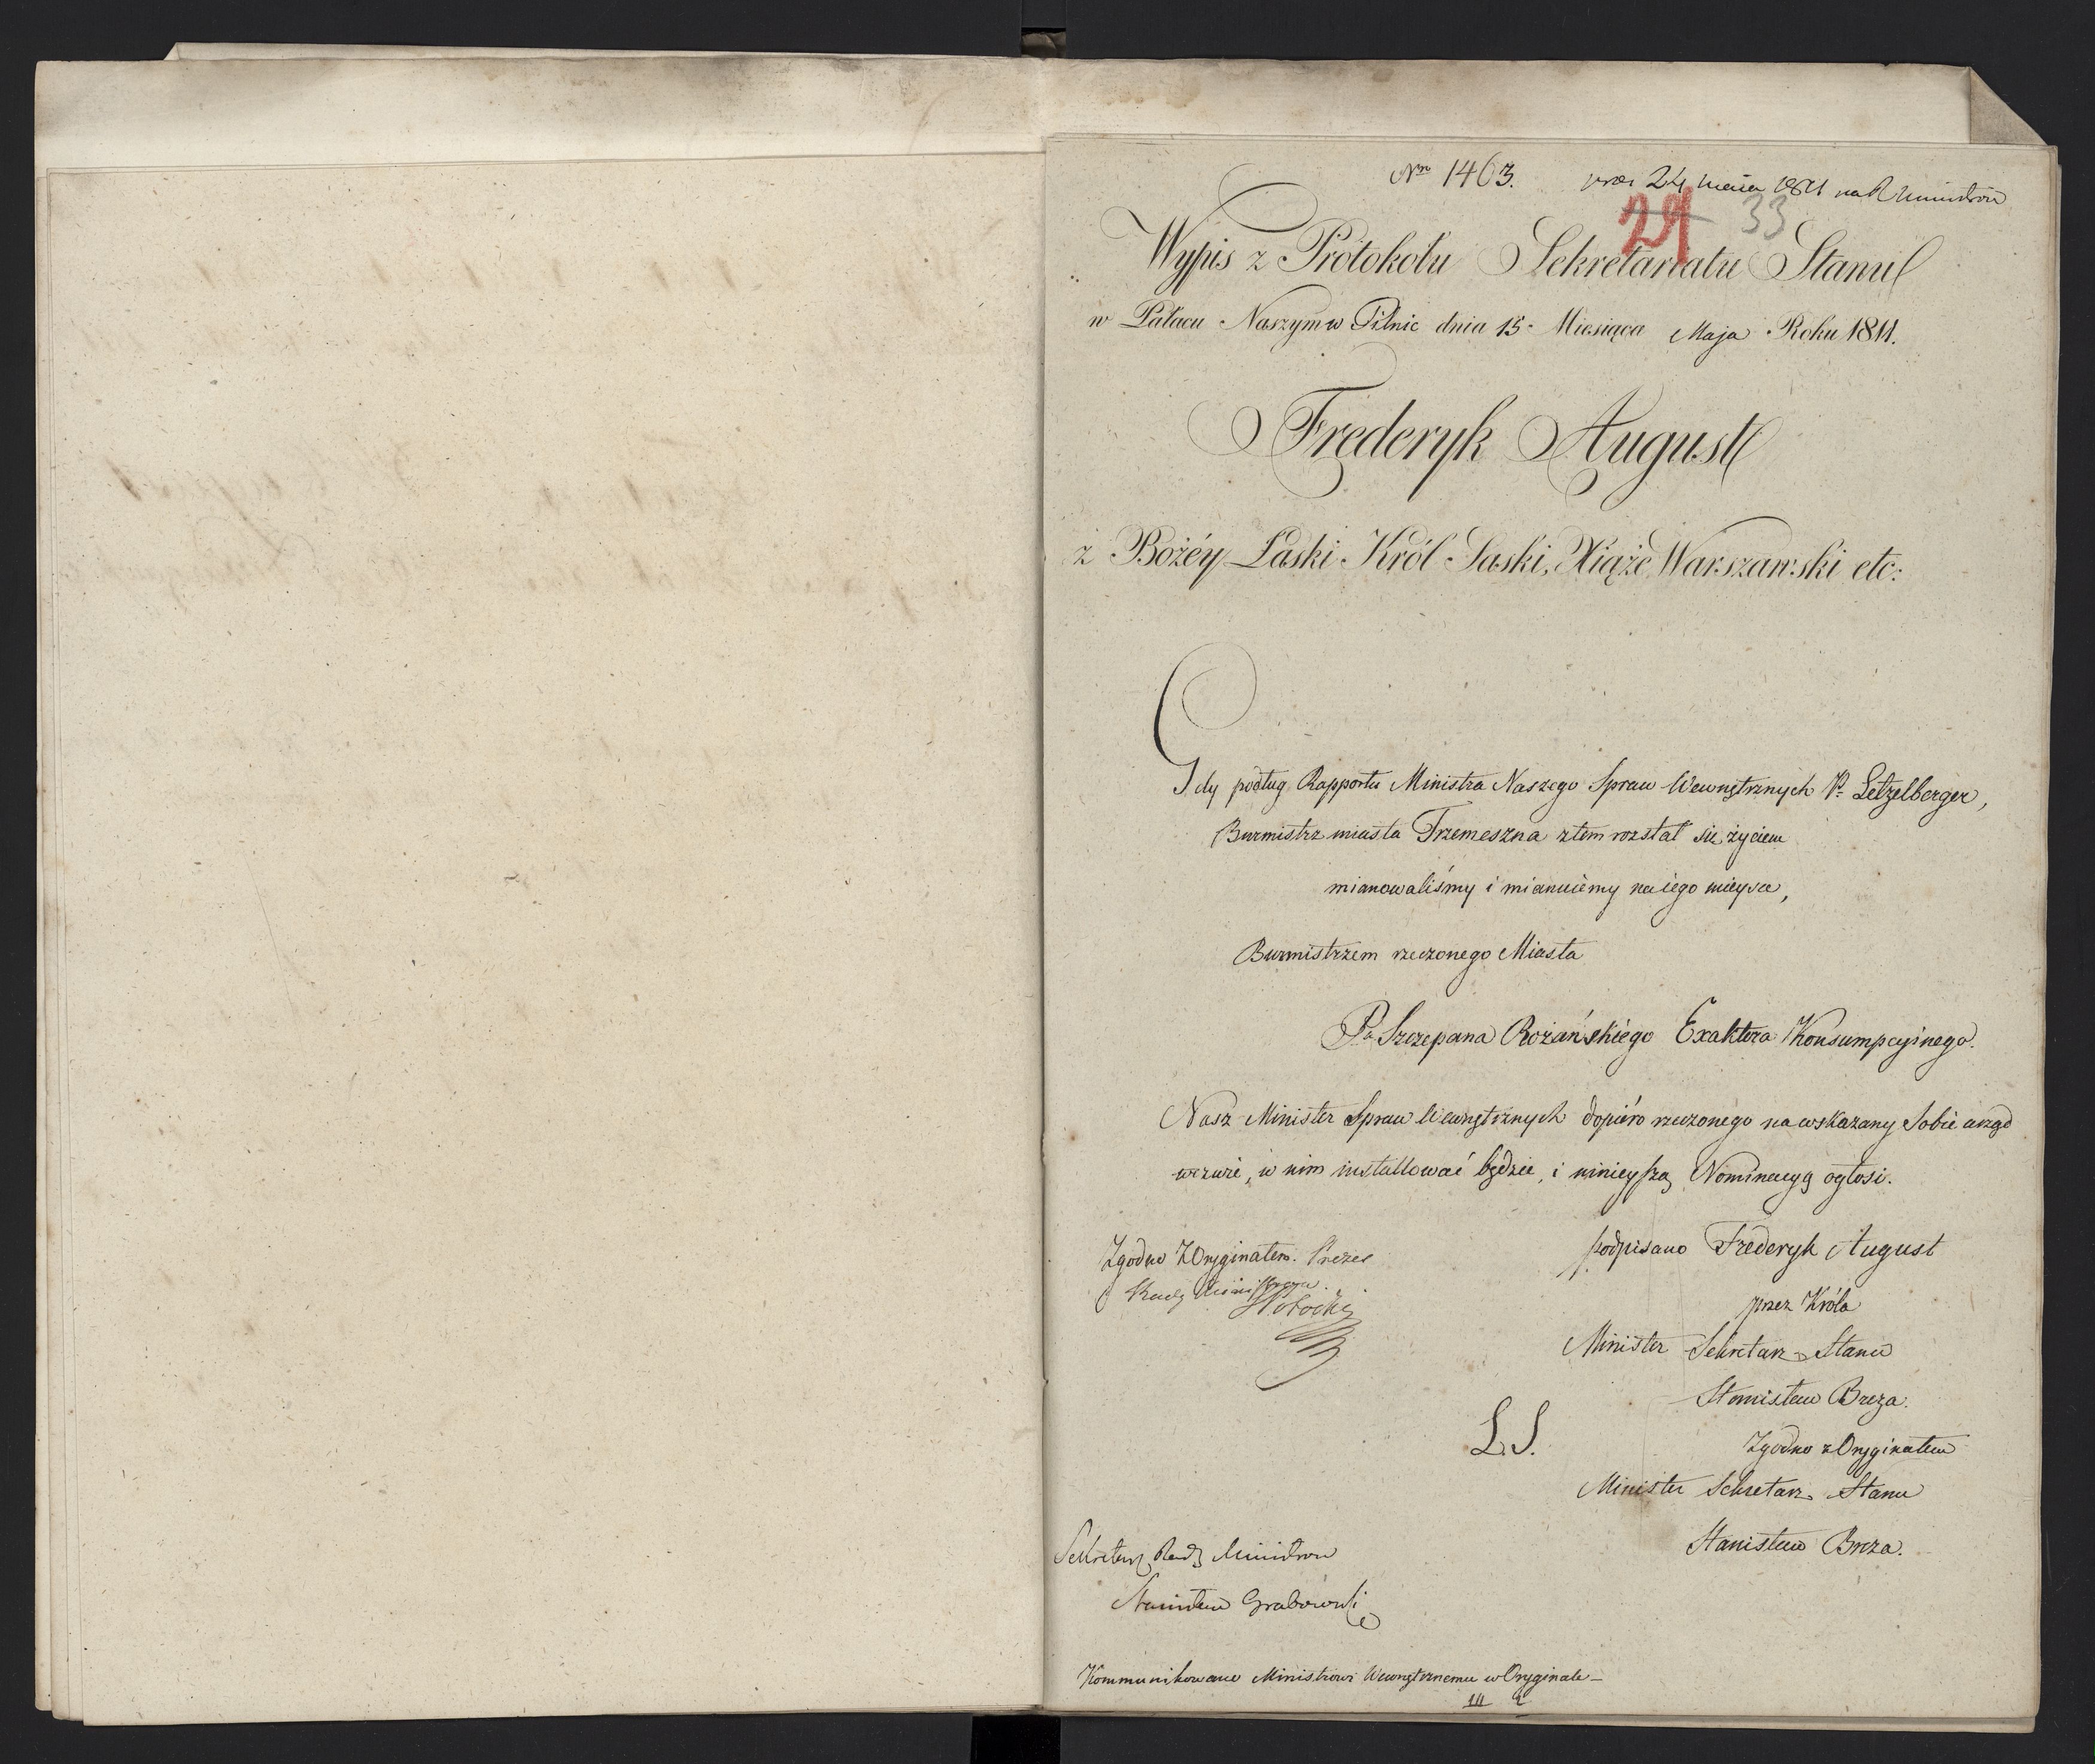 Nro 1463. 24 maia 1811 na R Ministrów
29 33
Wypis z Protokołu Sekretariatu Stanu
w Pałacu Naszym w Pilnic dnia 15. Miesiąca Maja Roku 1811.
Frederyk August
z Bożéy Łaski Król Saski, Xiąże Warszawski etc:
Gdy podług Rapportu Ministra Naszego Spraw Wewnętrznych P. Letzelberger,
Burmistrz miasta Trzemeszna z tem rozstał się życiem
mianowaliśmy i mianuiemy na iego mieysce,
Burmistrzem rzeczonego Miasta
Pa Szczepana Rożańskiego Exaktora Konsumpcyinego.
Nasz Minister Spraw Wewnętrznych dopiéro rzeczonego na wskazany Sobie urząd
wezwie, w nim installować będzie, i ninieyszą Nominacyą ogłosi.
Zgodno Z Oryginałem. Prezes
Rady Ministrów
Potocki
podpisano Frederyk August
przez Króla
Minister Sekretarz Stanu
Stanisław Breza.
L.S.
Zgodno z Oryginałem
Minister Sekretarz Stanu
Stanisław Breza.
Sekretarz Rady Ministrow
Stanisław Grabowski
Kommunikowane Ministrowi Wewnętrznemu w Oryginale